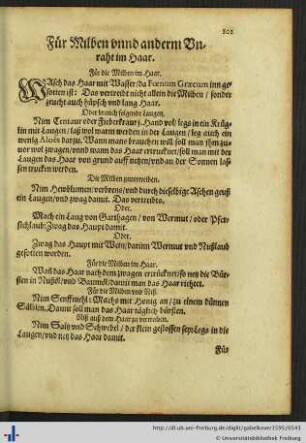 202
Für Milben vnnd anderm Vn-
raht im Haar.
Für die Milben im Haar.
WAsch das Haar mit Wasser/da Fœnum Græcum inn ge-
sotten ist: Das vertreibt nicht allein die Milben / sonder
macht auch hüpsch vnd lang Haar.
Oder brauch folgende Laugen.
Nim Centaur oder Fieberkraut j. Hand vol: legs in ein Krüg-
lin mit Laugen/ laß wol warm werden in der Laugen / leg auch ein
wenig Aloës darzu. Wann mans brauchen will soll man jhm zu-
vor wol zwagen/vnd wann das Haar ertrucknet/soll man mit der
Laugen das Haar von grund auff netzen/vnd an der Sonnen las-
sen trucken werden.
Die Milben zuvertreiben.
Nim Hewblumen/verbrens/vnd durch dieselbige Aschen geuß
ein Laugen/vnd zwag damit. Das vertreibts.
Oder.
Mach ein Laug von Garthagen / von Wermut / oder Pfer-
sichlaub: Zwag das Haupt damit.
Oder.
Zwag das Haupt mit Wein/darinn Wermut vnd Nußlaub
gesotten worden.
Für die Milben im Haar.
Wañ das Haar nach dem zwagen ertrücknet/so netz die Bür-
sten in Nußöl/vnd Baumöl/damit man das Haar richtet.
Für die Milben vnd Niß.
Nim Senffmehl: Machs mit Honig an/zu einem dünnen
Sälblin. Damit soll man das Haar täglich bürsten.
Niß auß dem Haar zu vertreiben.
Nim Saltz vnd Schwebel / das klein gestossen sey: Legs in die
Laugen/vnd netz das Haar damit.
Für
http://dl.ub.uni-freiburg.de/diglit/gabelkover1595/0543
© Universitätsbibliothek Freiburg